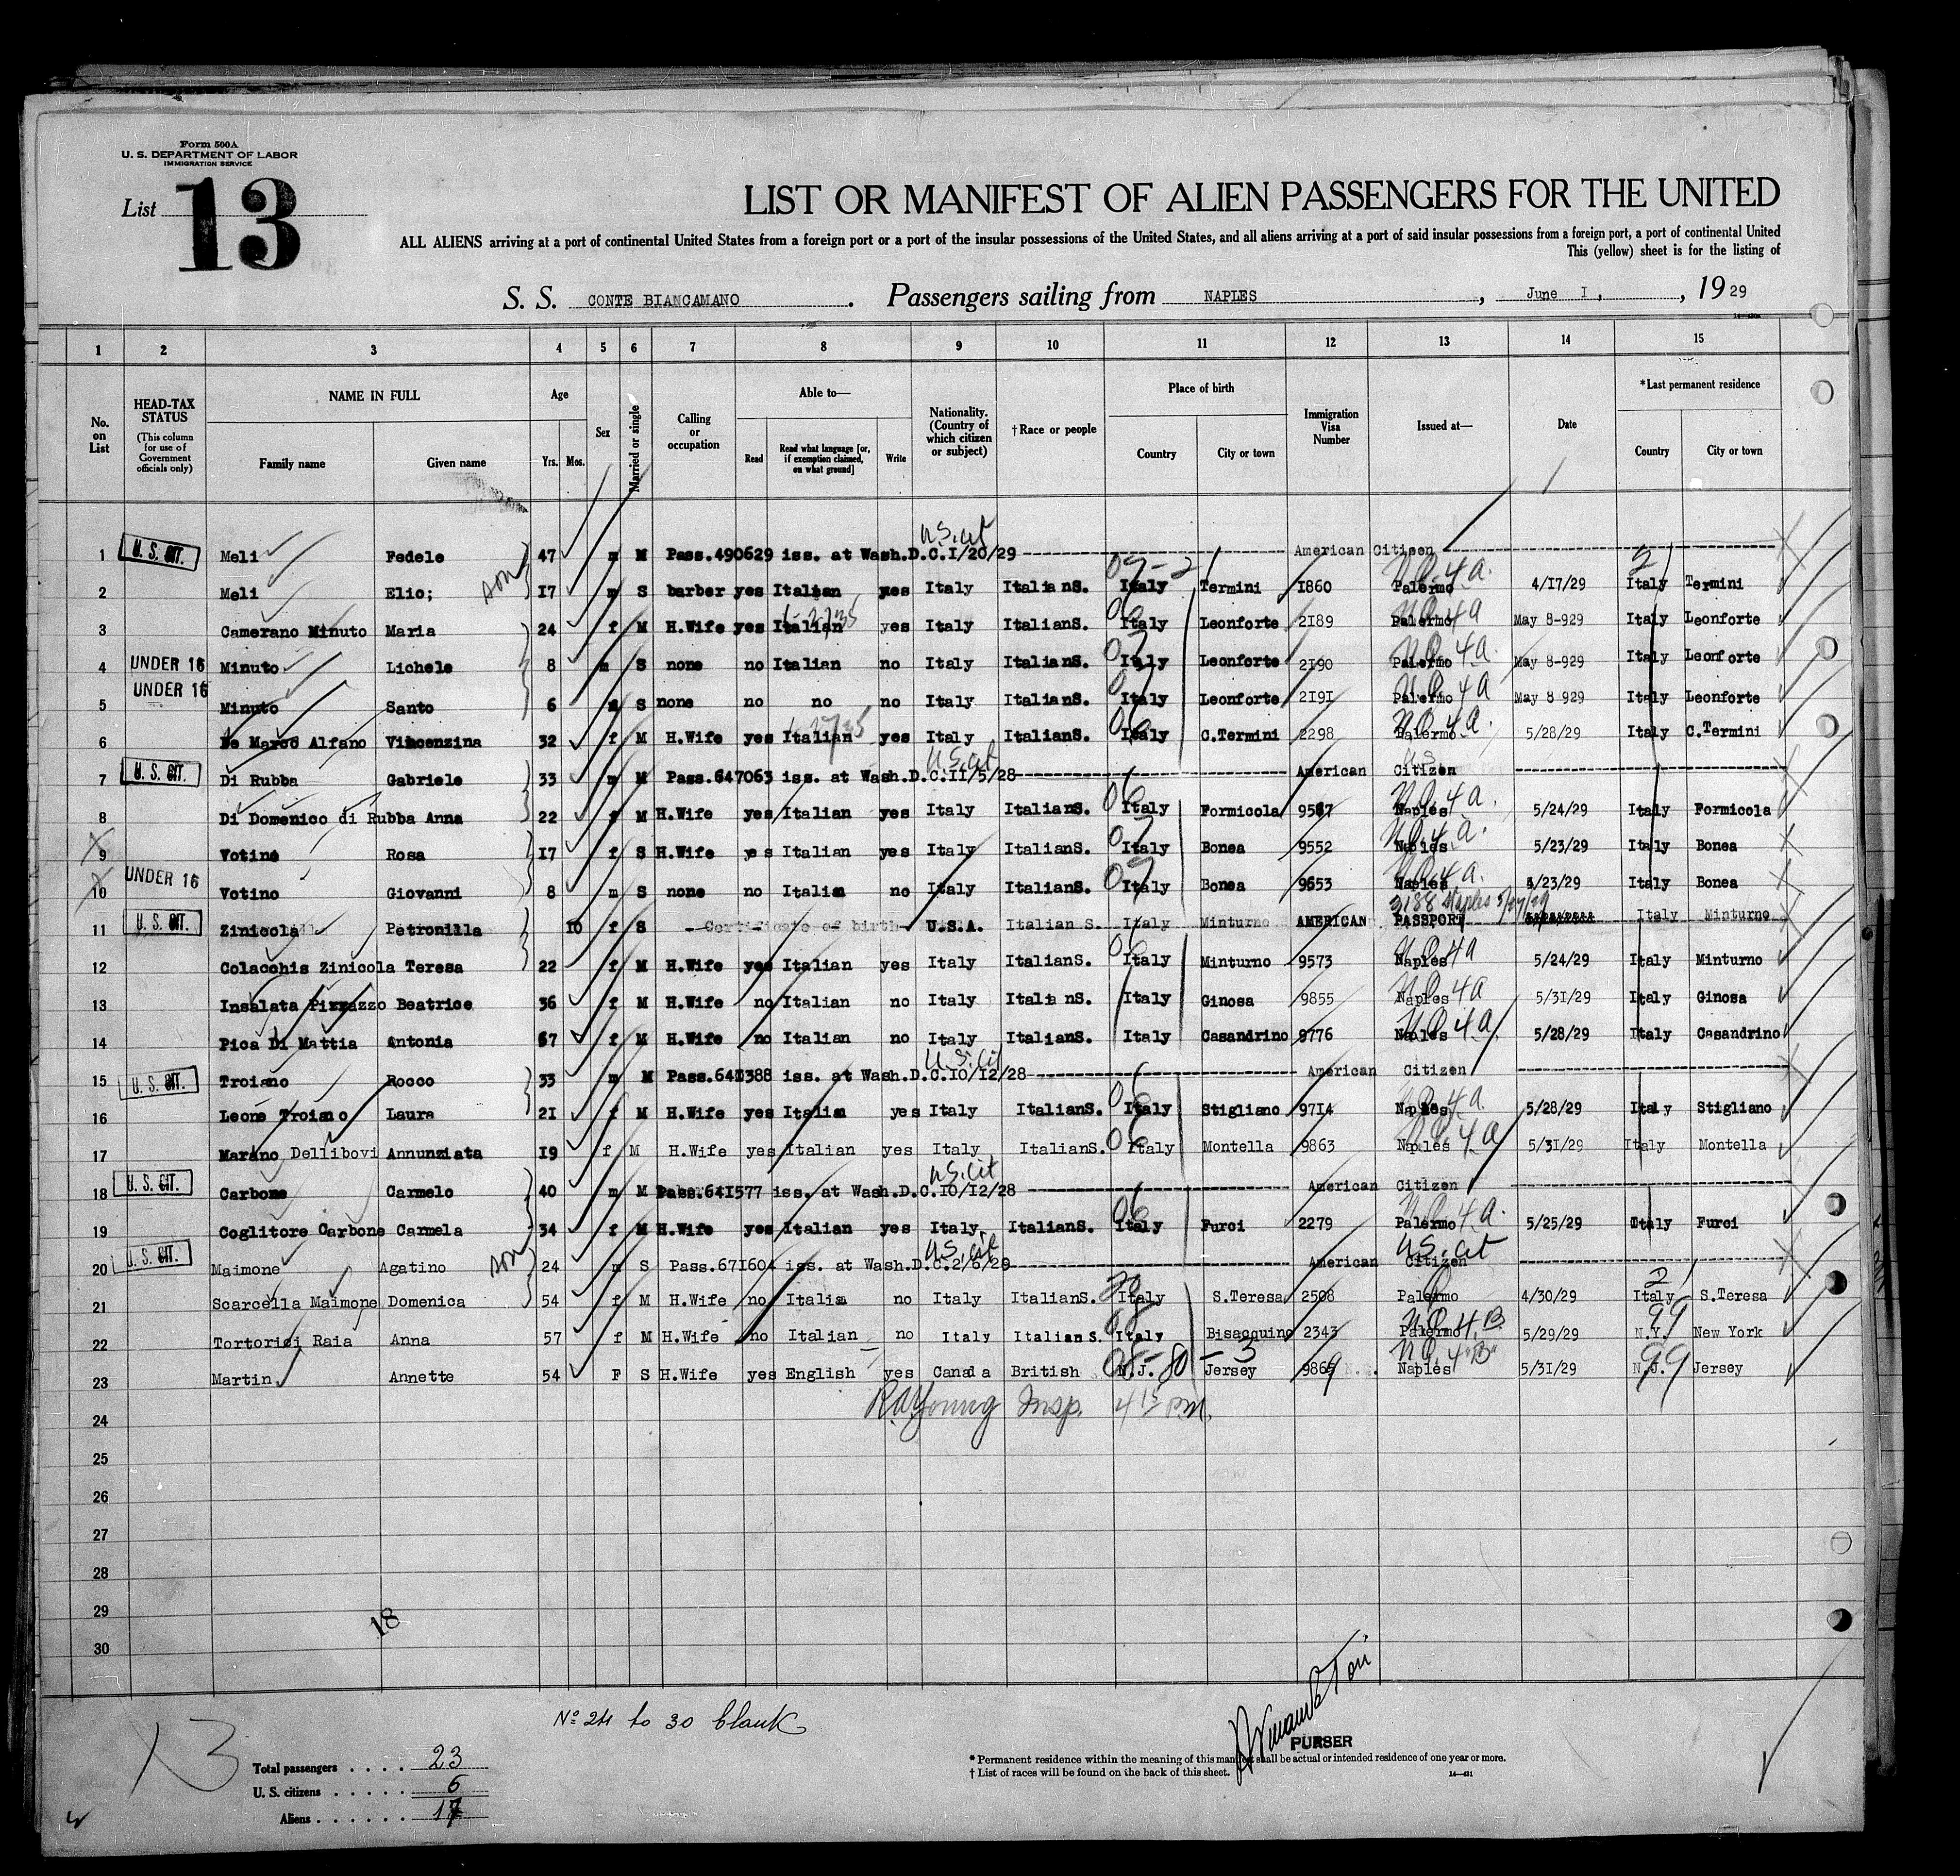 Form 500A
U. S. DEPARTMENT OF LABOR
IMMIGRATION SERVICE
List 13
LIST OR MANIFEST OF ALIEN PASSENGERS FOR THE UNITED
ALL ALIENS arriving at a port of continental United States from a foreign port or a port of the insular possessions of the United States, and all aliens arriving at a port of said insular possessions from a foreign port, a port of continental United
This (yellow) sheet is for the listing of
S. S. CONTE BIANCAMANO. Passengers sailing from NAPLES, June I, , 1929
1 2 3 4 5 6 7 8 9 10 11 12 13 14 15
No. on List
HEAD-TAX STATUS (This column for use of Government officials only)
NAME IN FULL
Family name Given name
Age
Yrs. Mos.
Sex
Married or single
Calling or occupation
Able to—
Read
Read what language [or, if exemption claimed, on what ground]
Write
Nationality. (Country of which citizen or subject)
†Race or people
Place of birth
Country City or town
Immigration Visa Number
Issued at—
Date
*Last permanent residence
Country City or town
U.S. cit
1 U. S. CIT. Meli Fedele 47 m M Pass.490629 iss. at Wash.D.C.I/20/29 American Citizen
2 Meli Elio; son I7 m S barber yes Italian yes Italy ItalianS. Italy Termini I860 Palermo 4/I7/29 Italy Termini
3 Camerano Minuto Maria 24 f M H.Wife yes Italian yes Italy ItalianS. Italy Leonforte 2I89 Palermo May 8-929 Italy Leonforte
4 UNDER 16 Minuto Lichele 8 m S none no Italian no Italy ItalianS. Italy Leonforte 2I90 Palermo May 8-929 Italy Leonforte
5 UNDER 16 Minuto Santo 6 m S none no no no Italy ItalianS. Italy Leonforte 2I9I Palermo May 8-929 Italy Leonforte
6 De Marco Alfano Vincenzina 32 f M H.Wife yes Italian yes Italy ItalianS. Italy C.Termini 2298 Palermo 5/28/29 Italy C.Termini
U.S. cit
7 U. S. CIT. Di Rubba Gabriele 33 m M Pass.647063 iss. at Wash.D.C.II/5/28 American Citizen
8 Di Domenico di Rubba Anna 22 f M H.Wife yes Italian yes Italy ItalianS. Italy Formicola 9567 Naples 5/24/29 Italy Formicola
9 Votino Rosa I7 f S H.Wife yes Italian yes Italy ItalianS. Italy Bonea 9552 Naples 5/23/29 Italy Bonea
10 UNDER 16 Votino Giovanni 8 m S none no Italian no Italy ItalianS. Italy Bonea 9553 Naples 5/23/29 Italy Bonea
11 U. S. CIT. Zinicola Petronilla 10 f S Certificate of birth U.S.A. Italian S. Italy Minturno AMERICAN PASSPORT 3188 Naples 5/27/29 Italy Minturno
12 Colacchis Zinicola Teresa 22 f M H.Wife yes Italian yes Italy ItalianS. Italy Minturno 9573 Naples 5/24/29 Italy Minturno
13 Insalata Pizzazzo Beatrice 36 f M H.Wife no Italian no Italy ItalianS. Italy Ginosa 9855 Naples 5/3I/29 Italy Ginosa
14 Pica Di Mattia Antonia 67 f M H.Wife no Italian no Italy ItalianS. Italy Casandrino 9776 Naples 5/28/29 Italy Casandrino
U.S. cit
15 U. S. CIT. Troiano Rocco 33 m M Pass.64I388 iss. at Wash.D.C.I0/I2/28 American Citizen
16 Leone Troiano Laura 2I f M H.Wife yes Italian yes Italy ItalianS. Italy Stigliano 97I4 Naples 5/28/29 Italy Stigliano
17 Marano Dellibovi Annunziata I9 f M H.Wife yes Italian yes Italy ItalianS. Italy Montella 9863 Naples 5/3I/29 Italy Montella
U.S. cit
18 U. S. CIT. Carbone Carmelo 40 m M Pass.64I577 iss. at Wash.D.C.I0/I2/28 American Citizen
19 Coglitore Carbone Carmela 34 f M H.Wife yes Italian yes Italy ItalianS. Italy Furci 2279 Palermo 5/25/29 Italy Furci
U.S. cit U.S. cit
20 U. S. CIT. Maimone Agatino son 24 m S Pass.67I604 iss. at Wash.D.C.2/6/28 American Citizen
21 Scarcella Maimone Domenica 54 f M H.Wife no Italia no Italy ItalianS. Italy S.Teresa 2508 Palermo 4/30/29 Italy S.Teresa
22 Tortorici Raia Anna 57 f M H.Wife no Italian no Italy Italian S. Italy Bisacquino 2343 Palermo 5/29/29 N.Y. New York
23 Martin Annette 54 F S H.Wife yes English yes Canada British N.J. Jersey 9869 Naples 5/31/29 N.J. Jersey
24 R.A. Young Insp. 4 15 P.M.
25
26
27
28
29
30
18
No 24 to 30 blank
13
Total passengers . . . . 23
U. S. citizens . . . . . 6
Aliens . . . . . . 17
PURSER
* Permanent residence within the meaning of this manifest shall be actual or intended residence of one year or more.
† List of races will be found on the back of this sheet.